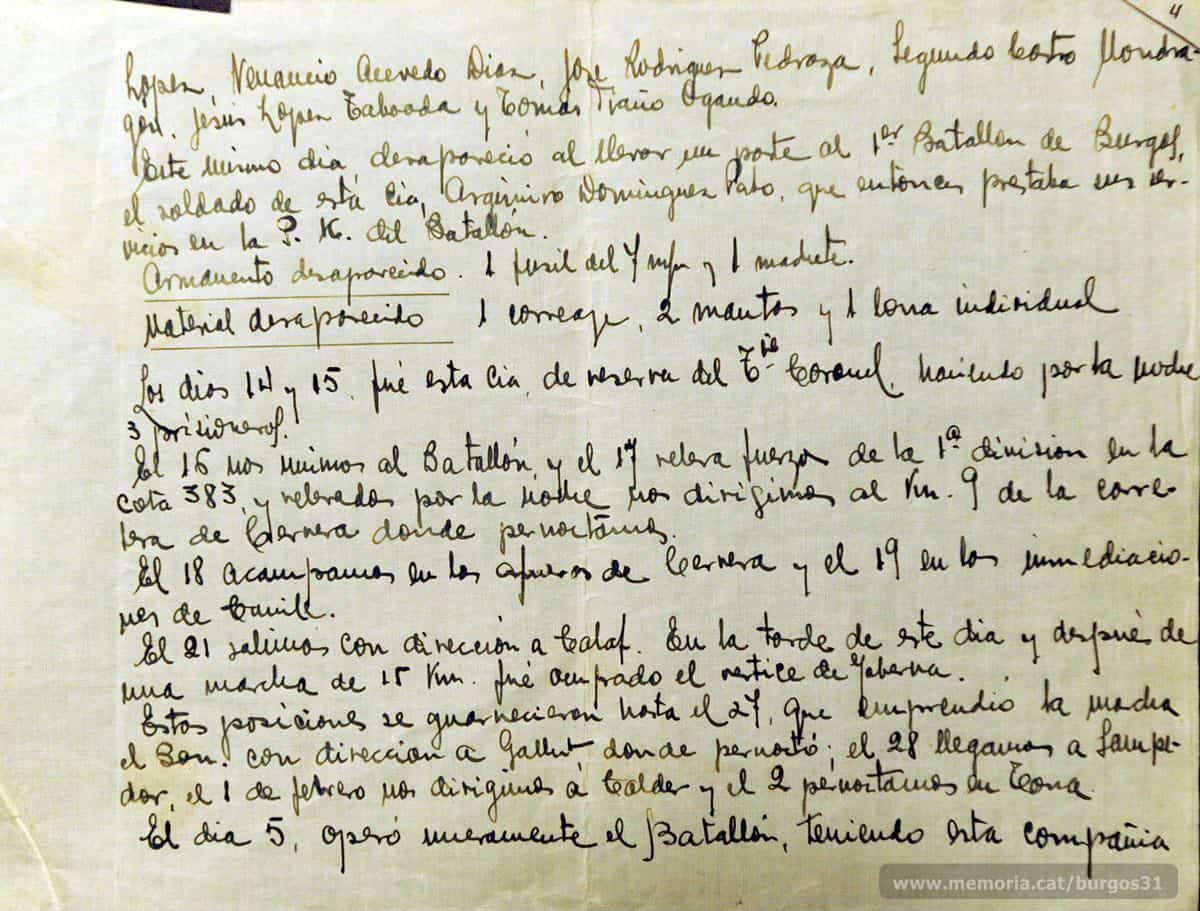 4
Lopez, Venancio Acevedo Diaz, Jose Rodriguez Pedraza, Segundo Castro Mondra-
gon. Jesús Lopez Taboada y Tomás Ogando.
Este mismo dia, desapareció al llevar un parte al 1er Batallon de Burgos,
el soldado de esta Cia, Argimiro Dominguez Pato, que entonces prestaba sus ser-
vicios en la P. K. del Batallón.
Armamento desaparecido. 1 fusil del 7 m/m y 1 machete.
Material desaparecido 1 correage, 2 mantas y 1 lona individual
Los dias 14 y 15, fué esta Cia, de reserva del Tte Coronel, haciendo por la noche
3 prisioneros.
El 16 nos unimos al Batallón, y el 17 releva fuerzas de la 1ª division en la
cota 383, y relevados por la noche nos dirigimos al Km. 9 de la corre-
tera de Cervera donde pernoctámos.
El 18 acampamos en las afueras de Cervera y el 19 en las inmediacio-
nes de
El 21 salimos con dirección a Calaf. En la tarde de este dia y después de
una marcha de 15 Km. fué ocupado el vertice de
Estas posiciones se guarnecieron hasta el 27, que emprendió la marcha
el Bon. con direccion a donde pernoctó; el 28 llegamos a Sampe-
dor, el 1 de febrero nos dirigimos a Calder y el 2 pernoctamos en Tona
El dia 5, operó nuevamente el Batallón, teniendo esta compañia
www.memoria.cat/burgos31